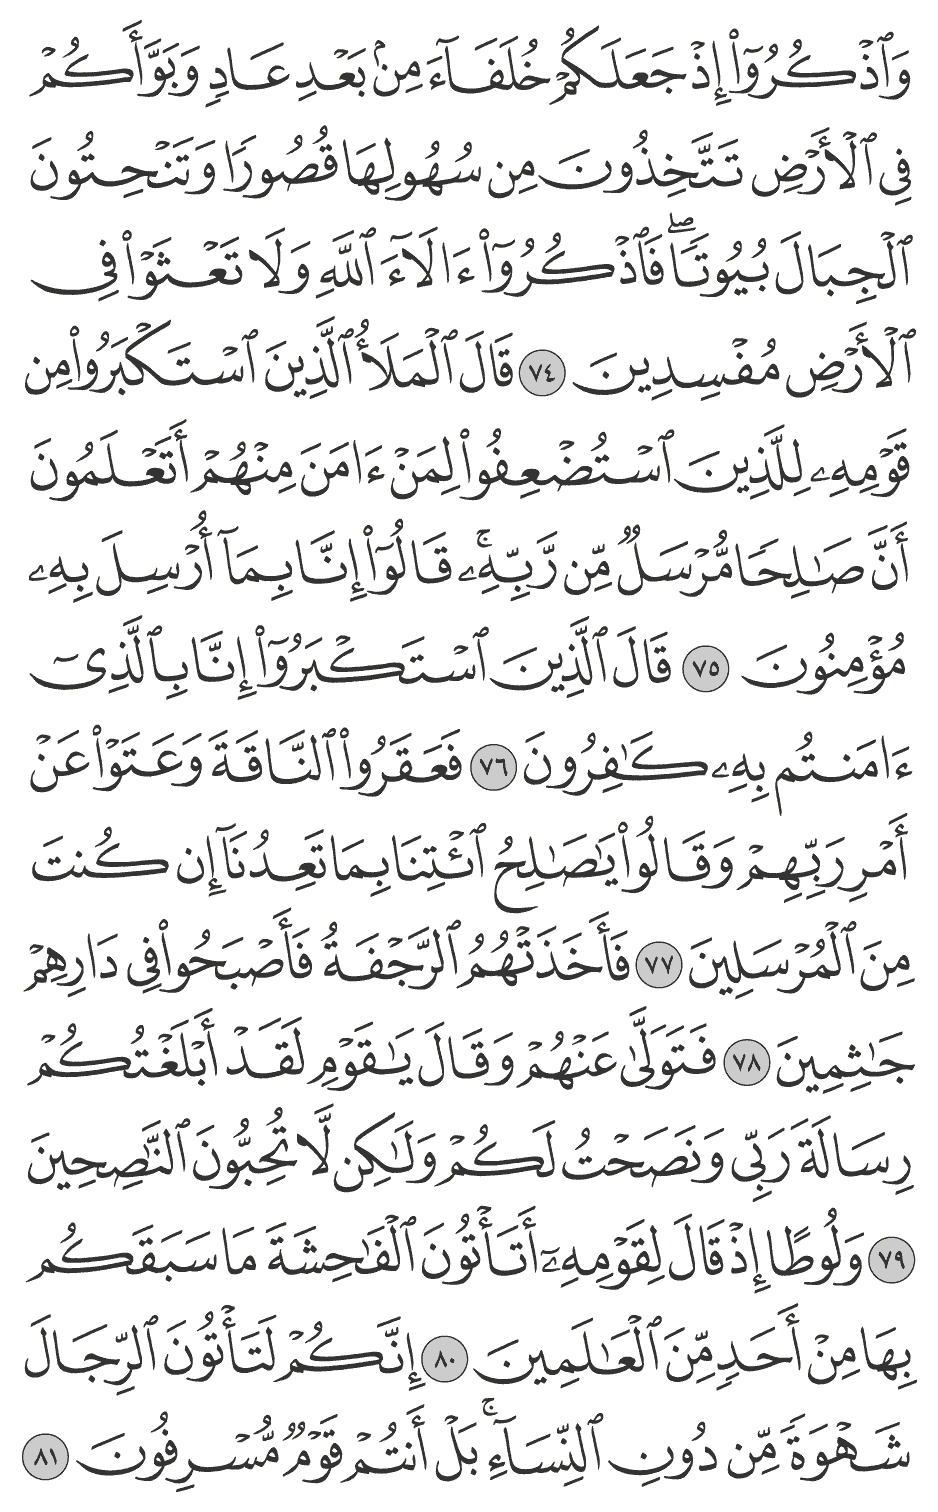 وَٱذْكُرُوٓا۟ إِذْ جَعَلَكُمْ خُلَفَآءَ مِنۢ بَعْدِ عَادٍ وَبَوَّأَكُمْ
فِي ٱلْأَرْضِ تَتَّخِذُونَ مِن سُهُولِهَا قُصُورًا وَتَنْحِتُونَ
ٱلْجِبَالَ بُيُوتًا ۖ فَٱذْكُرُوٓا۟ ءَالَآءَ ٱللَّهِ وَلَا تَعْثَوْا۟ فِى
ٱلْأَرْضِ مُفْسِدِينَ ٧٤ قَالَ ٱلْمَلَأُ ٱلَّذِينَ ٱسْتَكْبَرُوا۟ مِن
قَوْمِهِۦ لِلَّذِينَ ٱسْتُضْعِفُوا۟ لِمَنْ ءَامَنَ مِنْهُمْ أَتَعْلَمُونَ
أَنَّ صَـٰلِحًا مُّرْسَلٌ مِّن رَّبِّهِۦ ۚ قَالُوٓا۟ إِنَّا بِمَآ أُرْسِلَ بِهِۦ
مُؤْمِنُونَ ٧٥ قَالَ ٱلَّذِينَ ٱسْتَكْبَرُوٓا۟ إِنَّا بِٱلَّذِىٓ
ءَامَنتُم بِهِۦ كَـٰفِرُونَ ٧٦ فَعَقَرُوا۟ ٱلنَّاقَةَ وَعَتَوْا۟ عَنْ
أَمْرِ رَبِّهِمْ وَقَالُوا۟ يَـٰصَـٰلِحُ ٱئْتِنَا بِمَا تَعِدُنَآ إِن كُنتَ
مِنَ ٱلْمُرْسَلِينَ ٧٧ فَأَخَذَتْهُمُ ٱلرَّجْفَةُ فَأَصْبَحُوا۟ فِى دَارِهِمْ
جَـٰثِمِينَ ٧٨ فَتَوَلَّىٰ عَنْهُمْ وَقَالَ يَـٰقَوْمِ لَقَدْ أَبْلَغْتُكُمْ
رِسَالَةَ رَبِّى وَنَصَحْتُ لَكُمْ وَلَـٰكِن لَّا تُحِبُّونَ ٱلنَّـٰصِحِينَ
٧٩ وَلُوطًا إِذْ قَالَ لِقَوْمِهِۦٓ أَتَأْتُونَ ٱلْفَـٰحِشَةَ مَا سَبَقَكُم
بِهَا مِنْ أَحَدٍ مِّنَ ٱلْعَـٰلَمِينَ ٨٠ إِنَّكُمْ لَتَأْتُونَ ٱلرِّجَالَ
شَهْوَةً مِّن دُونِ ٱلنِّسَآءِ ۚ بَلْ أَنتُمْ قَوْمٌ مُّسْرِفُونَ ٨١